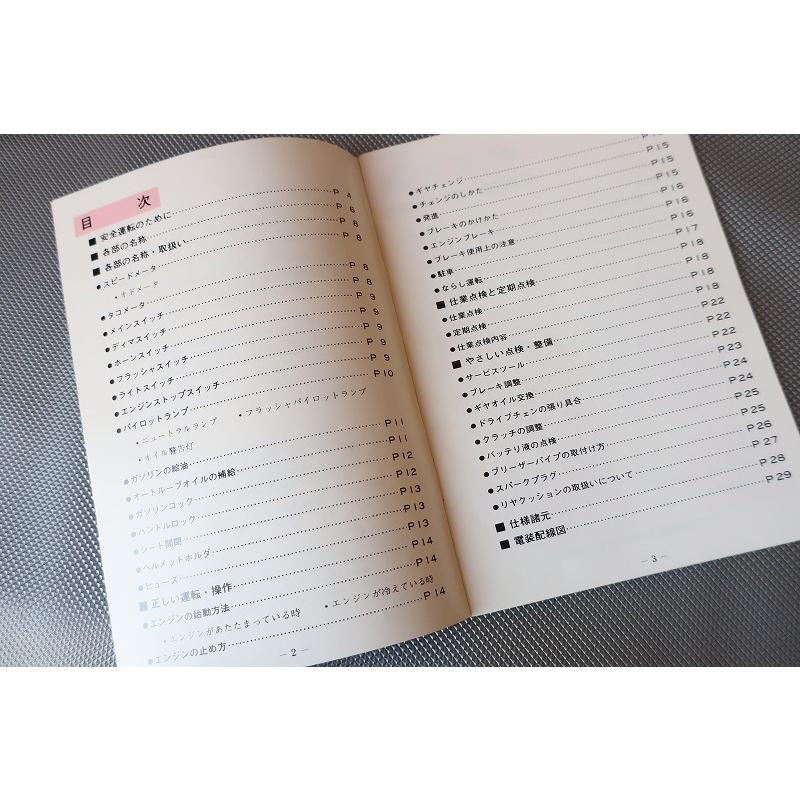 目 次
■安全運転のために……P 4
■各部の名称……P 6
■各部の名称・取扱い……P 8
●スピードメータ……P 8
・オドメータ
●タコメータ……P 8
●メインスイッチ……P 8
●ディマスイッチ……P 9
●ホーンスイッチ……P 9
●フラッシャスイッチ……P 9
●ライトスイッチ……P 9
●エンジンストップスイッチ……P 9
●パイロットランプ……P10
・ニュートラルランプ ・フラッシャパイロットランプ
・オイル警告灯
●ガソリンの給油……P11
●オートルーブオイルの補給……P11
●ガソリンコック……P12
●ハンドルロック……P12
●シート開閉……P13
●ヘルメットホルダ……P13
●ヒューズ……P13
■正しい運転・操作……P14
●エンジンの始動方法……P14
・エンジンがあたたまっている時 ・エンジンが冷えている時
●エンジンの止め方……P14
－2－
●ギヤチェンジ……
●チェンジのしかた……P15
●発進……P15
●ブレーキのかけかた……P15
●エンジンブレーキ……P16
●ブレーキ使用上の注意……P16
●駐車……P16
●ならし運転……P17
■仕業点検と定期点検……P18
●仕業点検……P18
●定期点検……P18
●仕業点検内容……P18
■やさしい点検・整備……P22
●サービスツール……P22
●ブレーキ調整……P22
●ギヤオイル交換……P23
●ドライブチェンの張り具合……P24
●クラッチの調整……P24
●バッテリ液の点検……P25
●ブリーザーパイプの取付け方……P25
●スパークプラグ……P26
●リヤクッションの取扱いについて……P27
■仕様諸元……P28
■電装配線図……P29
－3－